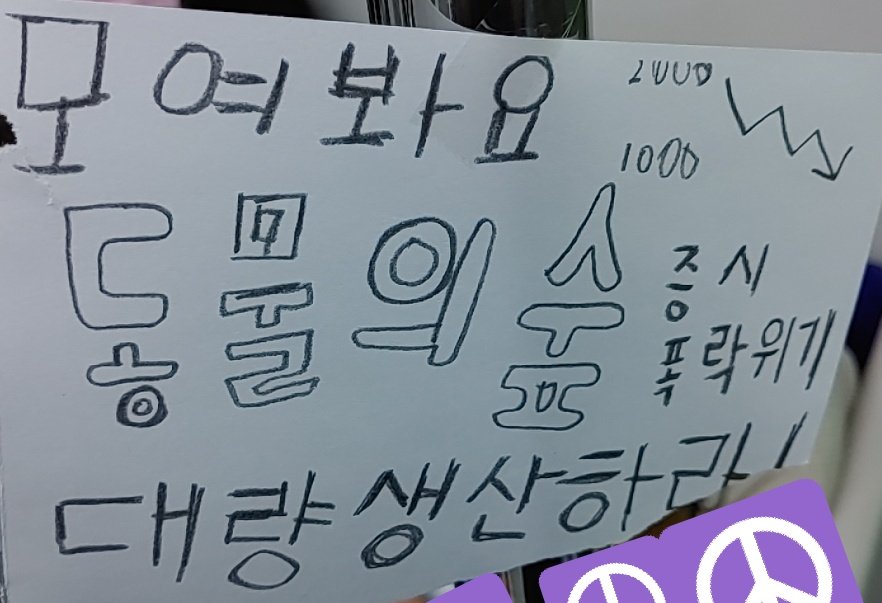 모여봐요
동물의 숲
2000
1000
증시
폭락위기
대량생산하라!